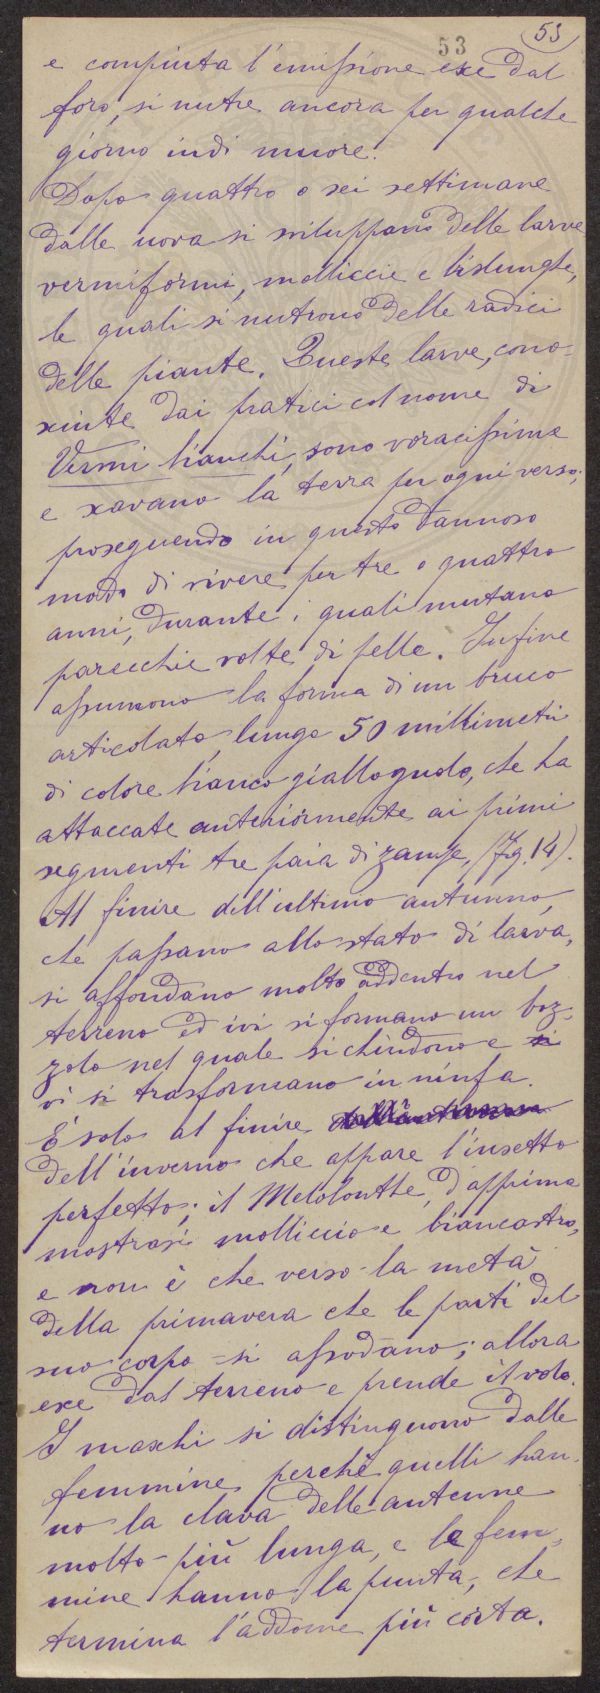 53
53
e compiuta l'emissione esce dal
foro, si nutre ancora per qualche
giorno indi muore.
Dopo quattro o sei settimane
dalle uova si sviluppano delle larve
vermiformi, molliccie e bislunghe,
le quali si nutrono delle radici
delle piante. Queste larve, cono-
sciute dai pratici col nome di
Vermi bianchi, sono voracissime
e scavano la terra per ogni verso;
proseguendo in questo dannoso
modo di vivere per tre o quattro
anni, durante i quali mutano
parecchie volte di pelle. Infine
assumono la forma di un bruco
articolato, lungo 50 millimetri
di colore bianco giallognolo, che ha
attaccate anteriormente ai primi
segmenti tre paia di zampe, (Fig. 14).
Al finire dell'ultimo autunno,
che passano allo stato di larva,
si affondano molto addentro nel
terreno ed ivi si formano un boz-
zolo nel quale si chiudono e si
vi si trasformano in ninfa.
E' solo al finire dell'autunno
dell'inverno che appare l'insetto
perfetto; il Melolonthe, dapprima
mostrasi molliccio e biancastro,
e non è che verso la metà
della primavera che le parti del
suo corpo si assodano; allora
esce dal terreno e prende il volo.
I maschi si distinguono dalle
femmine perchè quelli han-
no la clava delle antenne
molto più lunga, e le fem-
mine hanno la punta, che
termina l'addome più corta.